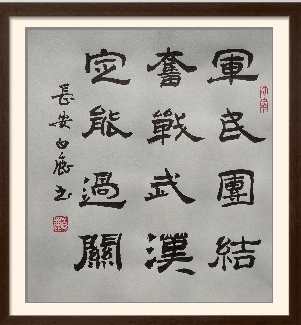 軍民團結
奮戰武漢
定能過關
長安白應書